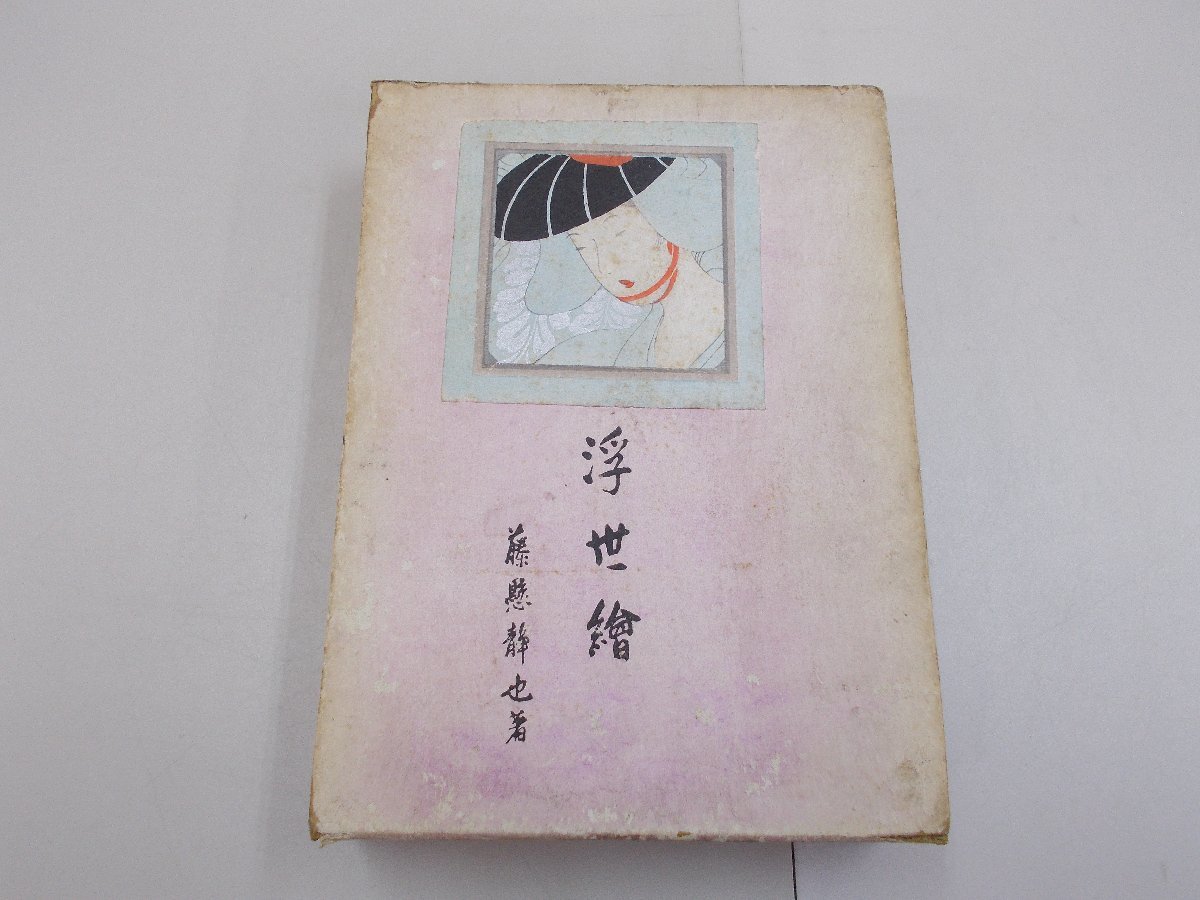 浮世繪
藤懸靜也著